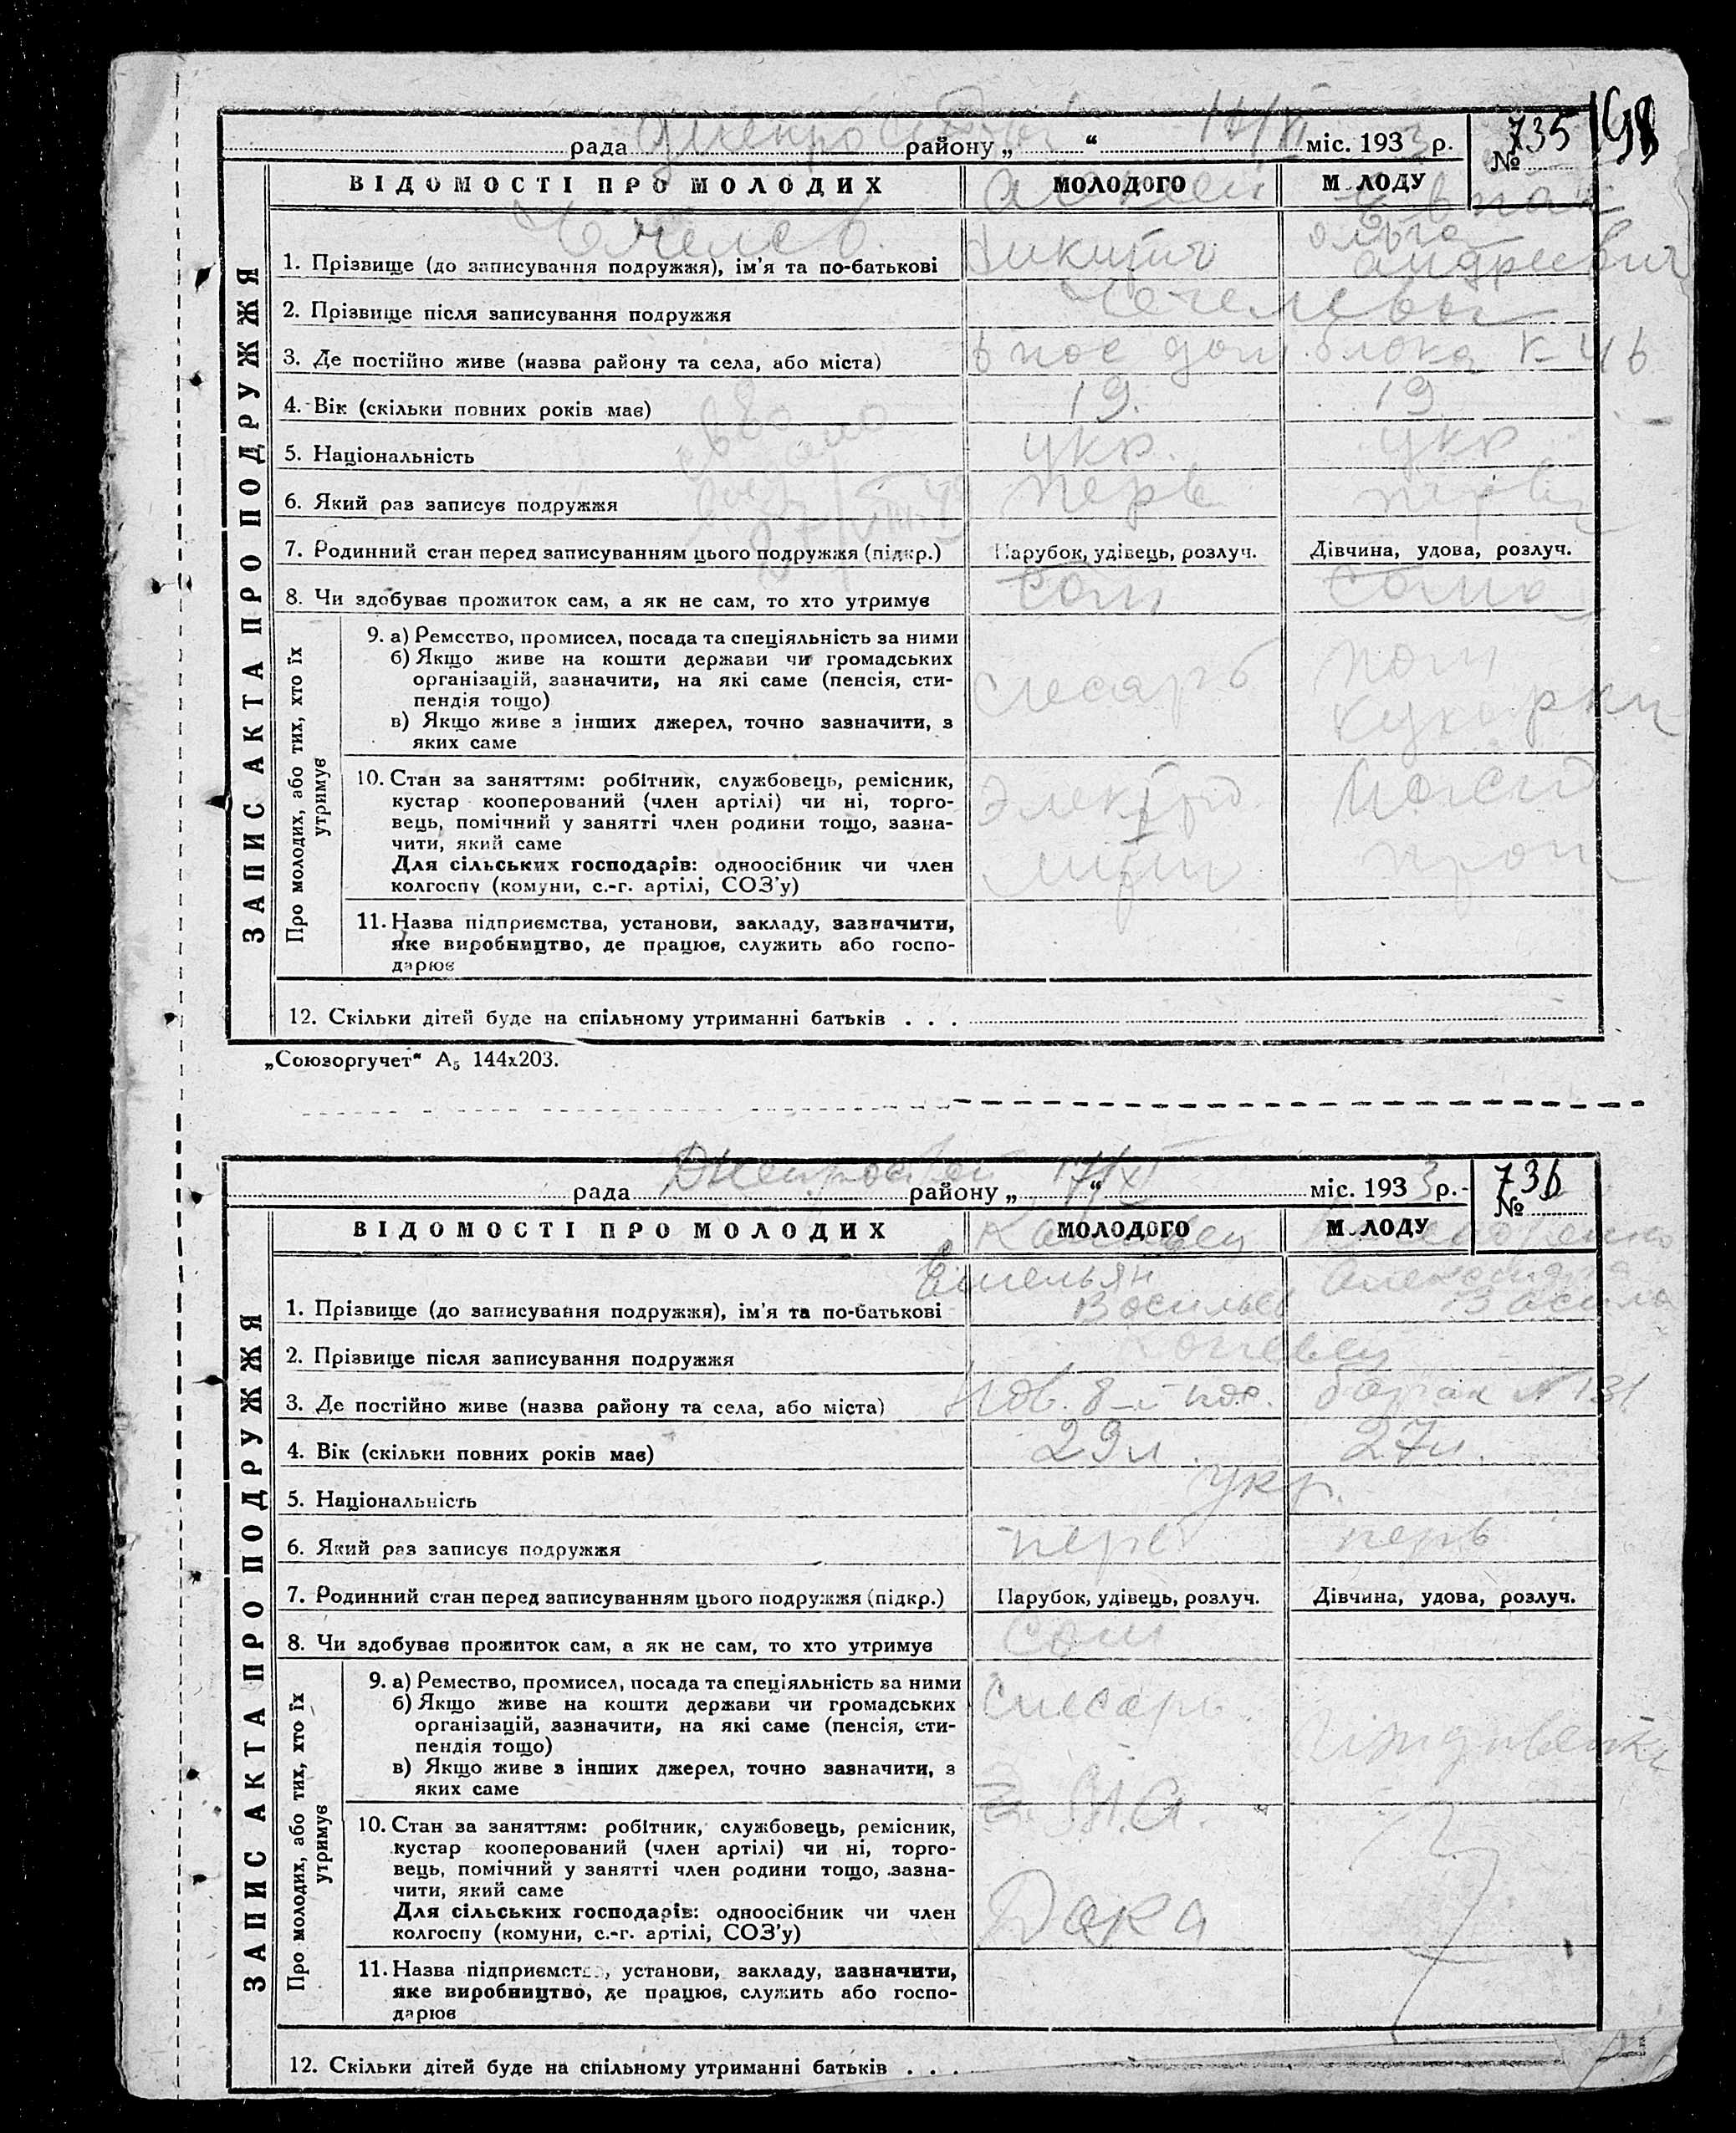 198
рада района „ “ 16/XI міс. 1933 р. № 735
ВІДОМОСТІ ПРО МОЛОДИХ МОЛОДОГО М ЛОДУ
ЗАПИС АКТА ПРО ПОДРУЖЖЯ
Алексей
Никитич Ольга Андреевич
1. Прізвище (до записування подружжя), ім’я та по-батькові
2. Прізвище після записування подружжя
3. Де постійно живе (назва району та села, або міста) 6 пос дом блока к-46
4. Вік (скільки повних років має) 19. 19
5. Національність укр. укр
6. Який раз записує подружжя перв перв
7. Родинний стан перед записуванням цього подружжя (підкр.) Парубок, удівець, розлуч. Дівчина, удова, розлуч.
8. Чи здобуває прожиток сам, а як не сам, то хто утримує сам сама
Про молодих, або тих, хто їх утримує
9. а) Ремество, промисел, посада та спеціяльність за ними
б) Якщо живе на кошти держави чи громадських
організацій, зазначити, на які саме (пенсія, сти-
пендія тощо)
в) Якщо живе з інших джерел, точно зазначити, з
яких саме
слесарь пом кухарки
10. Стан за заняттям: робітник, службовець, ремісник,
кустар кооперований (член артілі) чи ні, торго-
вець, помічний у занятті член родини тощо, зазна-
чити, який саме
Для сільських господарів: одноосібник чи член
колгоспу (комуни, с.-г. артілі, СОЗ’у)
Электро
11. Назва підприємства, установи, закладу, зазначити,
яке виробництво, де працює, служить або госпо-
дарює
12. Скільки дітей буде на спільному утриманні батьків . . .
„Союзоргучет“ А₅ 144х203.
рада района „ “ 17/XI міс. 1933 р. № 736
ВІДОМОСТІ ПРО МОЛОДИХ МОЛОДОГО М ЛОДУ
ЗАПИС АКТА ПРО ПОДРУЖЖЯ
Емельян Александра
1. Прізвище (до записування подружжя), ім’я та по-батькові Васильев Васила
2. Прізвище після записування подружжя
3. Де постійно живе (назва району та села, або міста) 8-й пос. барак №131
4. Вік (скільки повних років має) 29 л. 27 л.
5. Національність укр.
6. Який раз записує подружжя перв перв
7. Родинний стан перед записуванням цього подружжя (підкр.) Парубок, удівець, розлуч. Дівчина, удова, розлуч.
8. Чи здобуває прожиток сам, а як не сам, то хто утримує сам
Про молодих, або тих, хто їх утримує
9. а) Ремество, промисел, посада та спеціяльність за ними
б) Якщо живе на кошти держави чи громадських
організацій, зазначити, на які саме (пенсія, сти-
пендія тощо)
в) Якщо живе з інших джерел, точно зазначити, з
яких саме
слесарь иждивенка
10. Стан за заняттям: робітник, службовець, ремісник,
кустар кооперований (член артілі) чи ні, торго-
вець, помічний у занятті член родини тощо, зазна-
чити, який саме
Для сільських господарів: одноосібник чи член
колгоспу (комуни, с.-г. артілі, СОЗ’у)
11. Назва підприємства, установи, закладу, зазначити,
яке виробництво, де працює, служить або госпо-
дарює
12. Скільки дітей буде на спільному утриманні батьків . . .